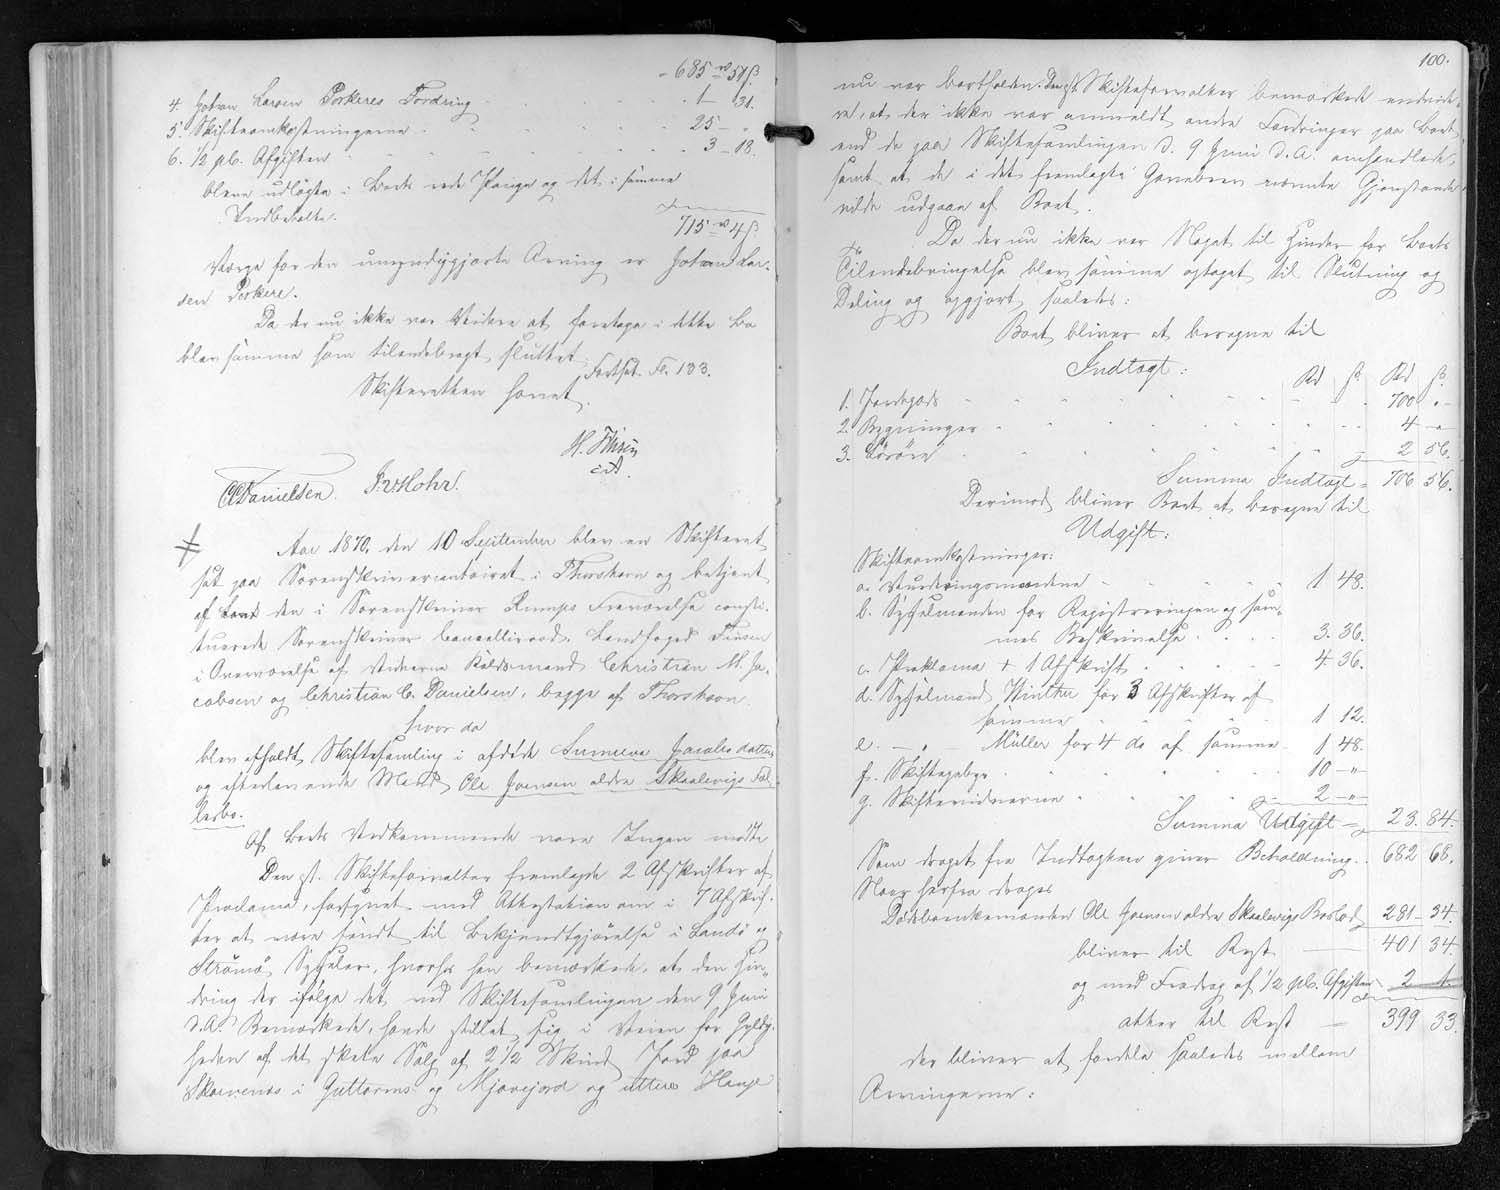 685 rd 51 ß.
4. Johan Larsen Porkeres Fordring 1 – 31.
5. Skifteomkostningerne 25 – „
6. 1/2 pCt. Afgiften 3 – 18.
blev udlagte i Boets rede Penge og det i samme
Indbeholdte.
715 rd 4 ß
Værge for den umyndiggjorte Arving er Johan Lar-
sen Porkere.
Da der nu ikke var Videre at foretage i dette Bo
blev samme som tilendebragt sluttet
Fortsat. Fo. 133.
Skifteretten hævet.
H.
cst
CCDanielsen. P.v.Mohr.
Aar 1870, den 10 September blev en Skifteret
sat paa Sorenskrivercontoiret i Thorshavn og betjent
af den i Sorenskriver Fraværelse consti-
tuerede Sorenskriver Cancelliraad, Landfoged
i Overværelse af Vidnerne Christian M. Ja-
cobsen og Christian C. Danielsen, begge af Thorshavn
hvor da
blev afholdt Skiftesamling i afdøde Sunneva Jacobsdatter
og efterlevende Mand Ole Joensen ældre Skaalevigs Fæl-
lesbo.
Af Boets Vedkommende vare Ingen mødte
Den cst. Skifteforvalter fremlagde 2 Afskrifter af
Proclama, forsynet med Attestation om i 7 Afskrif-
ter at være sendt til Bekjendtgjørelse i Sandø og
Strømø Sysseler, hvorhos han bemærkede, at den Hin-
dring der ifølge det ved Skiftesamlingen den 9 Juni
d.A. Bemærkede, havde stillet sig i Veien for Gyldig-
heden af det skete Salg af 2 1/2 Skind Jord paa
Skarvenæs i Guttorms og Mjovejord og yttere Hauge
100.
nu var bortfalden. Den cst. Skifteforvalter bemærkede endvide-
re, at der ikke var anmeldt andre Fordringer paa Boet
end de paa Skiftesamlingen d. 9 Juni d.A. omhandlede,
samt at de i det fremlagte Gavebrev nævnte Gjenstande
vilde udgaae af Boet.
Da der nu ikke var Noget til Hinder for Boets
Tilendebringelse blev samme optaget til Slutning og
Deling og opgjort saaledes:
Boet bliver at beregne til
Indtægt:
Rd ß. Rd ß.
1. Jordegods 700 „ –
2. Bygninger 4 – „ –
3. Løsøre 2 56.
Summa Indtægt = 706 56.
Derimod bliver Boet at beregne til
Udgift:
Skifteomkostninger:
a. Vurderingsmændene 1 48.
b. Sysselmanden for Registreringen og sam-
mes Beskrivelse 3. 36.
c. Proklama + 1 Afskrift 4 36.
d. Sysselmand Winther for 3 Afskrifter af
samme 1 12.
e. – „ – Müller for 4 do af samme 1 48.
f. Skiftegebyr 10 – „ –
g. Skiftevidnerne 2 – „ –
Summa Udgift = 23. 84.
Som draget fra Indtægten giver Beholdning 682 68.
Naar herfra drages
Ole Joensen ældre Skaalevigs Boslod 281 – 34.
bliver til Rest 401 34.
og med Fradrag af 1/2 pCt. Afgiften 2 1.
atter til Rest 399 33.
der bliver at fordele saaledes mellem
Arvingerne: